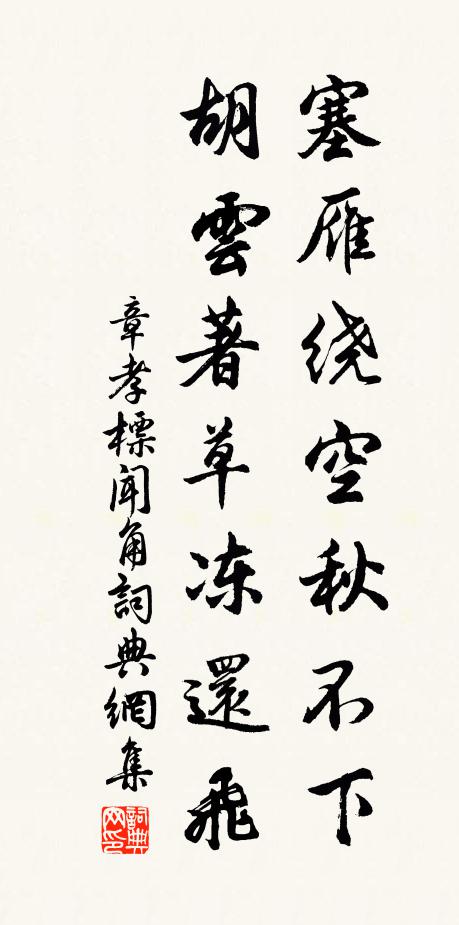 塞雁绕空秋不下
胡雲著草冻還飛
章孝標聞角詞典網集
詞典网印